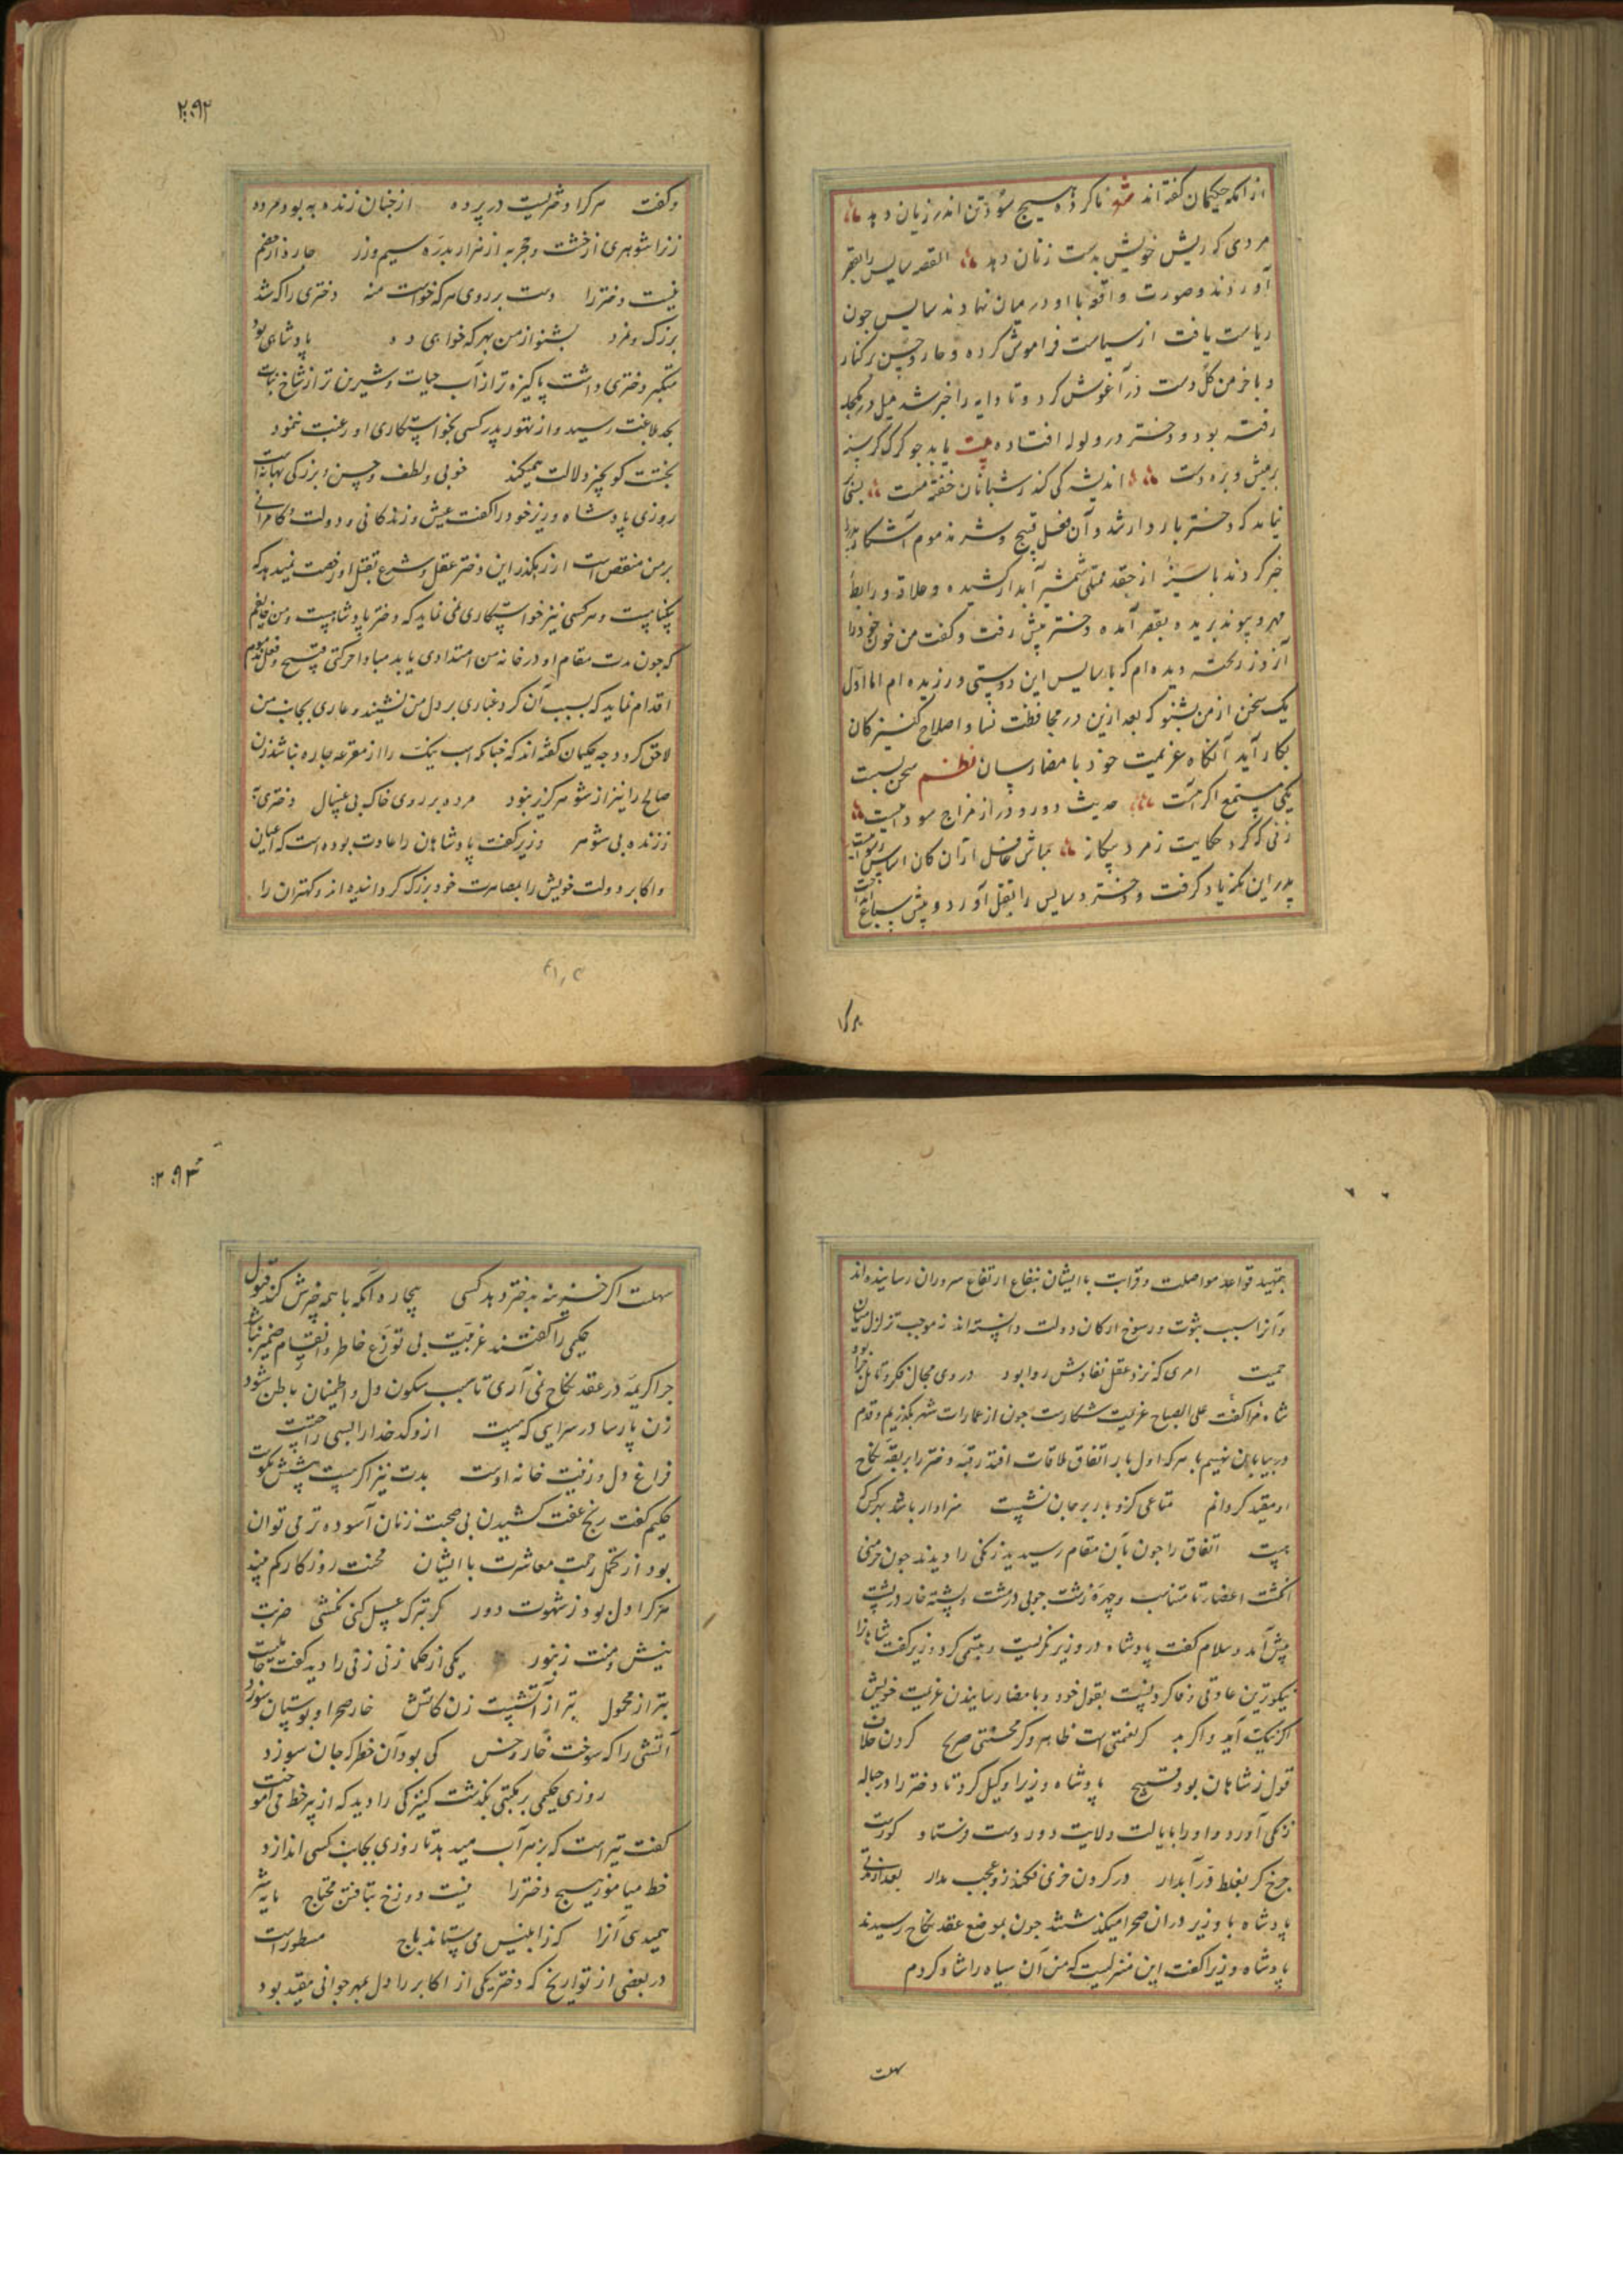 از آنکه حکیمان گفته‌اند شعر ناکرده هیچ سود تن اندر زیان دهد
مردی که ریش خویش بدست زنان دهد القصه سایس را بقصر
آوردند و صورت واقعه با او در میان نهادند سایس چون
ریاست یافت از سیاست فراموش کرده و خار و خس بر کنار
و با خرمن گل دست در آغوش کرد و تا دایه را خبر شد میل در مکحله
رفته بود و دختر در ولوله افتاده بیت یابد چو گرگ گرسنه
بر میش و بره دست اندیشه کی کند ز شبانان خفته مست بسی
نماند که دختر باردار شد و آن فعل قبیح و شر مذموم آشکارا پدر را
خبر کردند با از حقد ممتلی شمشیر آبدار کشیده و علاقه و رابطه
مهر و پیوند بریده بقصر آمده دختر پیش رفت و گفت من خون خود را
آن روز ریخته دیده‌ام که با سایس این دوستی ورزیده‌ام اما اول
یک سخن از من بشنو که بعد ازین در محافظت نسا و اصلاح کنیزکان
بکار آید آنگاه عزیمت خود بامضا رسان نظم سخن بسست
یکی مستمع اگر هست حدیث دور و دراز مزاج سوداییست
زنی که کرد حکایت ز مرد بیگانه مباش غافل از آن کان اساس رسواییست
پدر این نکته یاد گرفت و دختر و سایس را بقتل آورد و پیش سباع انداخت
۲۰۹۲
و گفت هر کرا دختریست در پرده از چنان زنده به بود مرده
زن را شوهری از خشت و حجر به از هزار بدره سیم و زر چاره از معجر
نیست دختر را دست بر روی هر که خواست منه دختری را که شد
بزرگ و نمرد بشنو از من بهر که خواهی ده پادشاهی بود
متکبر دختری داشت پاکیزه‌تر از آب حیات و شیرین‌تر از شاخ نبات
بحد بلاغت رسید و از تهور پدر کسی بخواستگاری او رغبت ننمود
بختت کو بچیز دلالت همیکند خوبی و لطف و حسن و بزرگی بهانه است
روزی پادشاه وزیر خود را گفت عیش و زندگانی و دولت و کامرانی
بر من منغص است از رهگذر این دختر عقل و شرع بقتل او رخصت نمیدهد که
بیگناهست و هر کسی نیز خواستگاری نمی نماید که دختر پادشاهست و من خایفم
که چون مدت مقام او در خانه من امتدادی یابد مبادا حرکتی قبیح و فعل مذموم
اقدام نماید که بسبب آن گرد و غباری بر دل من نشیند و عاری بجانب من
لاحق گردد چه حکیمان گفته‌اند که چنانکه اسب نیک را از مقرعه چاره نباشد زن
صالح را نیز از شوهر گریز نبود مرده بر روی خاک بی غسال دختری به
ز زنده بی شوهر وزیر گفت پادشاهان را عادت بوده است که اعیان
و اکابر دولت خویش را بمصاهرت خود بزرگ گردانیده‌اند و کهتران را
بتمهید قواعد مواصلت و قرابت با ایشان ببقاع ارتفاع سروران رسانیده‌اند
و آنرا سبب ثبوت و رسوخ ارکان دولت دانسته‌اند نه موجب تزلزل بنیان
حمیت امری که نزد عقل نفادش روا بود در وی مجال فکر و تامل چرا بود
شاه فرا گفت علی الصباح عزیمت شکارست چون از عمارات شهر بگذریم و قدم
در بیابان نهیم با هر که اول بار اتفاق ملاقات افتد رقبه دختر را بربقه نکاح
او مقید گردانم متاعی کزو بار بر جان نشیست سزاوار باشد بهر کس که
هست اتفاق را چون بآن مقام رسیدند زنگی را دیدند چون خرمنی
انگشت اعضا نامتناسب و چهره زشت چوبی در مشت و پشته خار در پشت
پیش آمد و سلام گفت پادشاه در وزیر نگریست و تبسمی کرد وزیر گفت شاها را
نیکوترین عادتی وفا کردنست بقول خود و بامضا رسانیدن عزیمت خویش
اگر نیک آید و اگر بد گر نعمتی است ظاهر و گر محنتی صریح کردن خلاف
قول ز شاهان بود قبیح پادشاه وزیر را وکیل کرد تا دختر را در حباله
زنگی آورد و او را بایالت ولایت دوردست فرستاد کورست
چرخ گر بغلط در آبدار در گردن خری فکند زو عجب مدار بعد از مدتی
پادشاه با وزیر در آن صحرا میگذشتند چون بموضع عقد نکاح رسیدند
پادشاه وزیر را گفت این منزلیست که من آن سیاه را شاد کردم
سهلست
۲۰۹۳
سهلست اگر خزینه بدختر دهد کسی بیچاره آنکه با همه چیزش کند قبول
حکیمی را گفتند عزبیت بی توزع خاطر و انقسام ضمیر نباشد
چرا کریمه در عقد نکاح نمی آری تا سبب سکون دل و اطمینان باطن شود
زن پارسا در سرایی که هست از و کدخدا را بسی راحتست
فراغ دل و زینت خانه اوست بدت نیز اگر هست پیشش نکوست
حکیم گفت رنج عفت کشیدن بی صحبت زنان آسوده‌تر می توان
بود از تحمل زحمت معاشرت با ایشان محنت روزگار کم بیند
هر کرا دل بود ز شهوت دور گر تو ترک عسل کنی نکشی ضربت
نیش و منت زنبور یکی از حکما زنی زنی را دید گفت
بتر از محمول بتر از آتشیست زن کآتش خار صحرا و بوستان سوزد
آتشی را که سوخت خار و خس کی بود آن خطر که جان سوزد
روزی حکیمی بر مکتبی بگذشت کنیزکی را دید که از پیر خط می آموخت
گفت تیر است که بزهر آب میدهد تا روزی بجانب کسی اندازد
خط میاموز هیچ دختر را نیست دوزخ بتافتن محتاج مایه شر
همیدهی آنرا که ز ابلیس می ستاند باج مسطور است
در بعضی از تواریخ که دختر یکی از اکابر را دل بمهر جوانی مقید بود